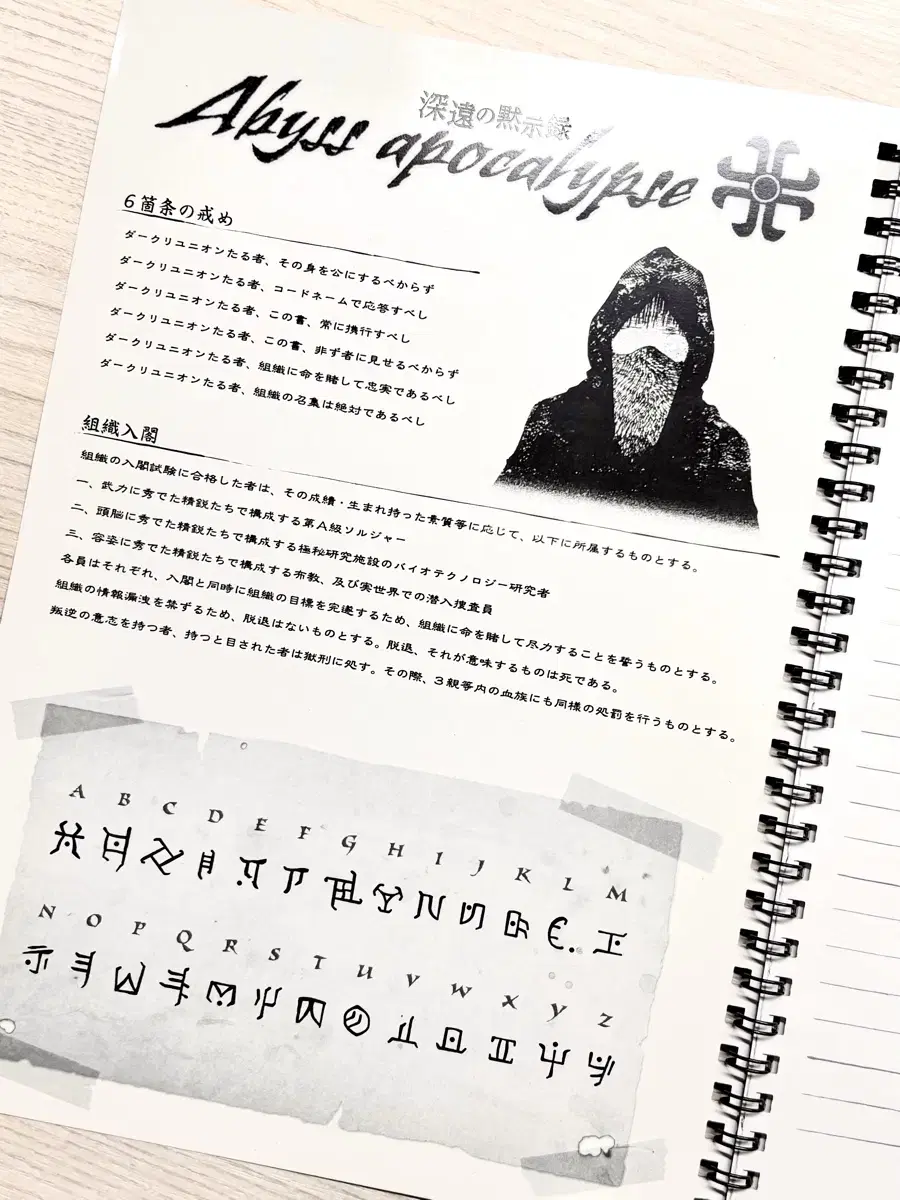 深遠の黙示録
Abyss apocalypse
6箇条の戒め
ダークリユニオンたる者、その身を公にするべからず
ダークリユニオンたる者、コードネームで応答すべし
ダークリユニオンたる者、この書、常に携行すべし
ダークリユニオンたる者、この書、非ず者に見せるべからず
ダークリユニオンたる者、組織に命を賭して忠実であるべし
ダークリユニオンたる者、組織の召集は絶対であるべし
組織入閣
組織の入閣試験に合格した者は、その成績・生まれ持った素質等に応じて、以下に所属するものとする。
一、武力に秀でた精鋭たちで構成する第A級ソルジャー
二、頭脳に秀でた精鋭たちで構成する極秘研究施設のバイオテクノロジー研究者
三、容姿に秀でた精鋭たちで構成する布教、及び実世界での潜入捜査員
各員はそれぞれ、入閣と同時に組織の目標を完遂するため、組織に命を賭して尽力することを誓うものとする。
組織の情報漏洩を禁ずるため、脱退はないものとする。脱退、それが意味するものは死である。
叛逆の意志を持つ者、持つと目された者は獄刑に処す。その際、3親等内の血族にも同様の処罰を行うものとする。
A B C D E F G H I J K L M
N O P Q R S T U V W X Y Z